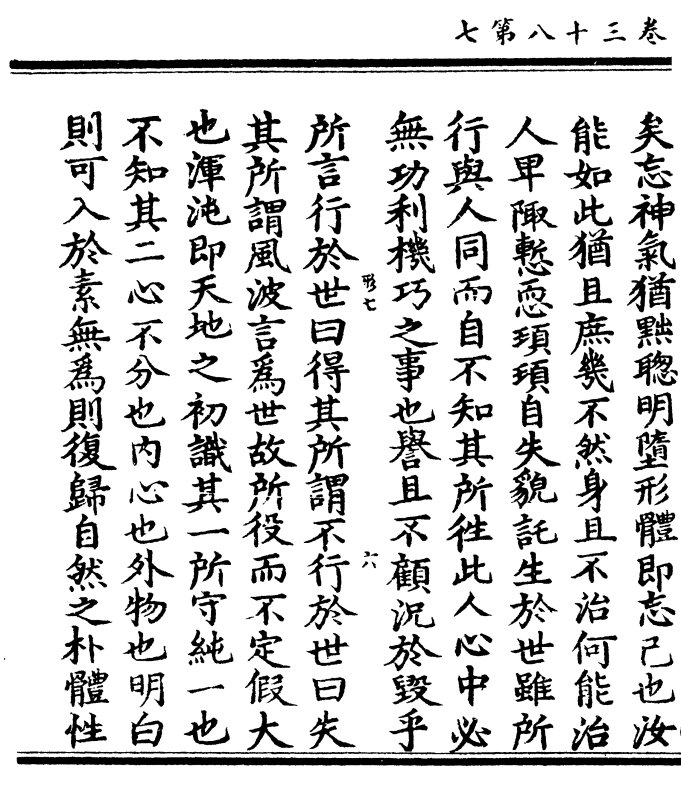 卷三十八第七
矣忘神氣猶黜聰明墮形體即忘己也汝
能如此猶且庶幾不然身且不治何能治
人卑陬慙恧頊頊自失貌託生於世雖所
行與人同而自不知其所徃此人心中必
無功利機巧之事也譽且不顧况於毀乎
形七
六
所言行於世曰得其所謂不行於世曰失
其所謂風波言爲世故所役而不定假大
也渾沌即天地之初識其一所守純一也
不知其二心不分也内心也外物也明白
則可入於素無爲則復歸自然之朴體性